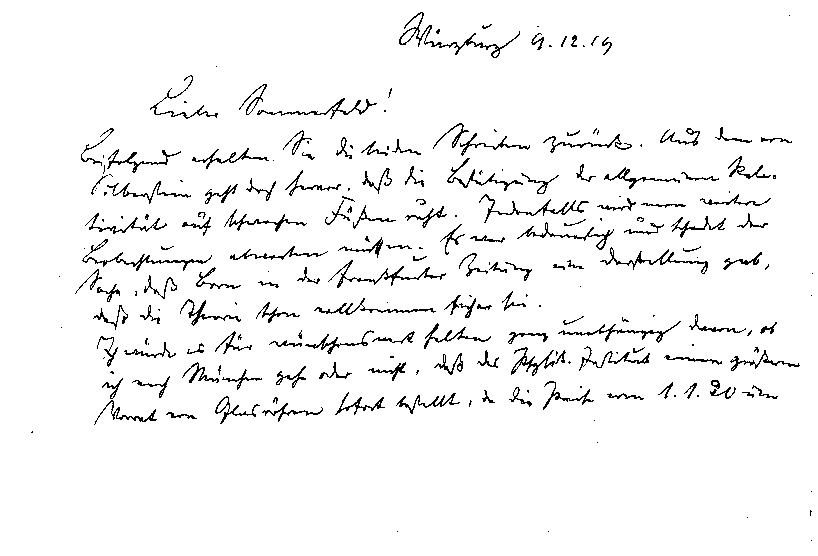 Würzburg 9.12.19
Lieber Sommerfeld!
Beifolgend erhalten Sie die beiden Schreiben zurück. Aus dem von
Silberstein geht doch hervor, daß die Bestätigung der allgemeinen Rela-
tivität auf schwachen Füßen ruht. Jedenfalls wird man weitere
Beobachtungen abwarten müssen. Es war bedauerlich und schadet der
Sache, daß Born in der Frankfurter Zeitung eine Darstellung gab,
daß die Theorie schon vollkommen sicher sei.
Ich würde es für wünschenswert halten ganz unabhängig davon, ob
ich nach München gehe oder nicht, daß das Physik. Institut einen größeren
Vorrat von Glasröhren sofort bestellt, da die Preise vom 1.1.20 um